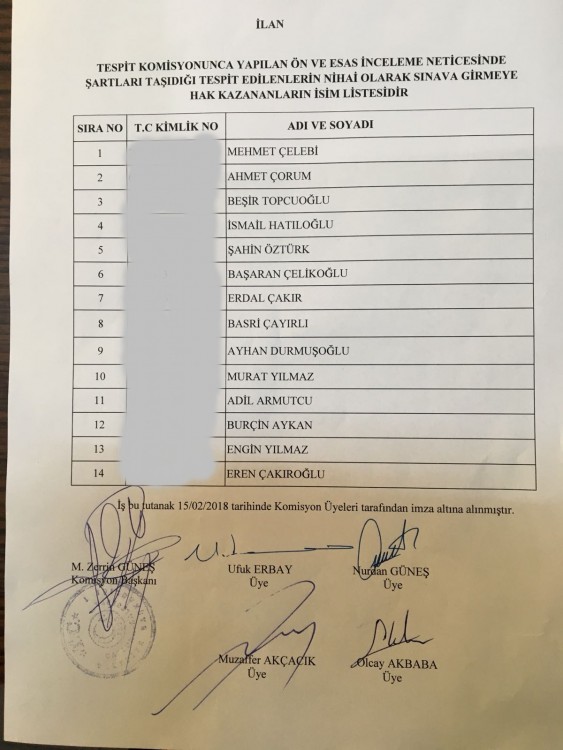 İLAN
TESPİT KOMİSYONUNCA YAPILAN ÖN VE ESAS İNCELEME NETİCESİNDE
ŞARTLARI TAŞIDIĞI TESPİT EDİLENLERİN NİHAİ OLARAK SINAVA GİRMEYE
HAK KAZANANLARIN İSİM LİSTESİDİR
SIRA NO T.C KİMLİK NO ADI VE SOYADI
1 MEHMET ÇELEBİ
2 AHMET ÇORUM
3 BEŞİR TOPCUOĞLU
4 İSMAİL HATILOĞLU
5 ŞAHİN ÖZTÜRK
6 BAŞARAN ÇELİKOĞLU
7 ERDAL ÇAKIR
8 BASRİ ÇAYIRLI
9 AYHAN DURMUŞOĞLU
10 MURAT YILMAZ
11 ADİL ARMUTCU
12 BURÇİN AYKAN
13 ENGİN YILMAZ
14 EREN ÇAKIROĞLU
İş bu tutanak 15/02/2018 tarihinde Komisyon Üyeleri tarafından imza altına alınmıştır.
M. Zerrin GÜNEŞ Ufuk ERBAY Nurdan GÜNEŞ
Komisyon Başkanı Üye Üye
Muzaffer AKÇACIK Olcay AKBABA
Üye Üye